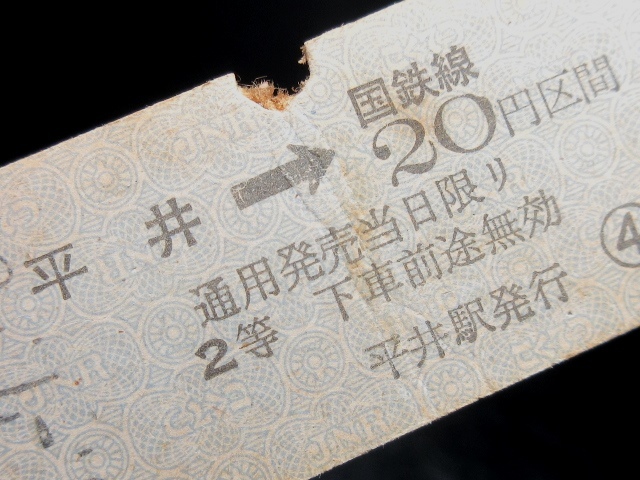 平井 → 国鉄線 20円区間
通用発売当日限り
2等 下車前途無効
平井駅発行
④